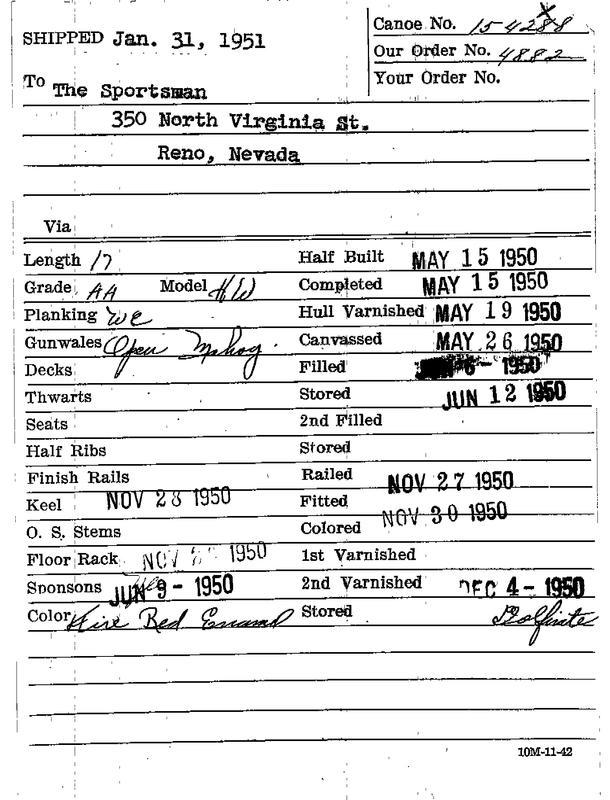 Canoe No. 154288
SHIPPED Jan. 31, 1951
Our Order No. 4882
Your Order No.
To The Sportsman
350 North Virginia St.
Reno, Nevada
Via
Length 17 Half Built MAY 15 1950
Grade AA Model HW Completed MAY 15 1950
Planking WC Hull Varnished MAY 19 1950
Gunwales Open Mahog. Canvassed MAY 26 1950
Decks Filled 6 - 1950
Thwarts Stored JUN 12 1950
Seats 2nd Filled
Half Ribs Stored
Finish Rails Railed NOV 27 1950
Keel NOV 28 1950 Fitted
O. S. Stems Colored NOV 30 1950
Floor Rack NOV 1950 1st Varnished
Sponsons JUN 9 - 1950 2nd Varnished DEC 4 - 1950
Color Fire Red Enamel Stored
10M-11-42